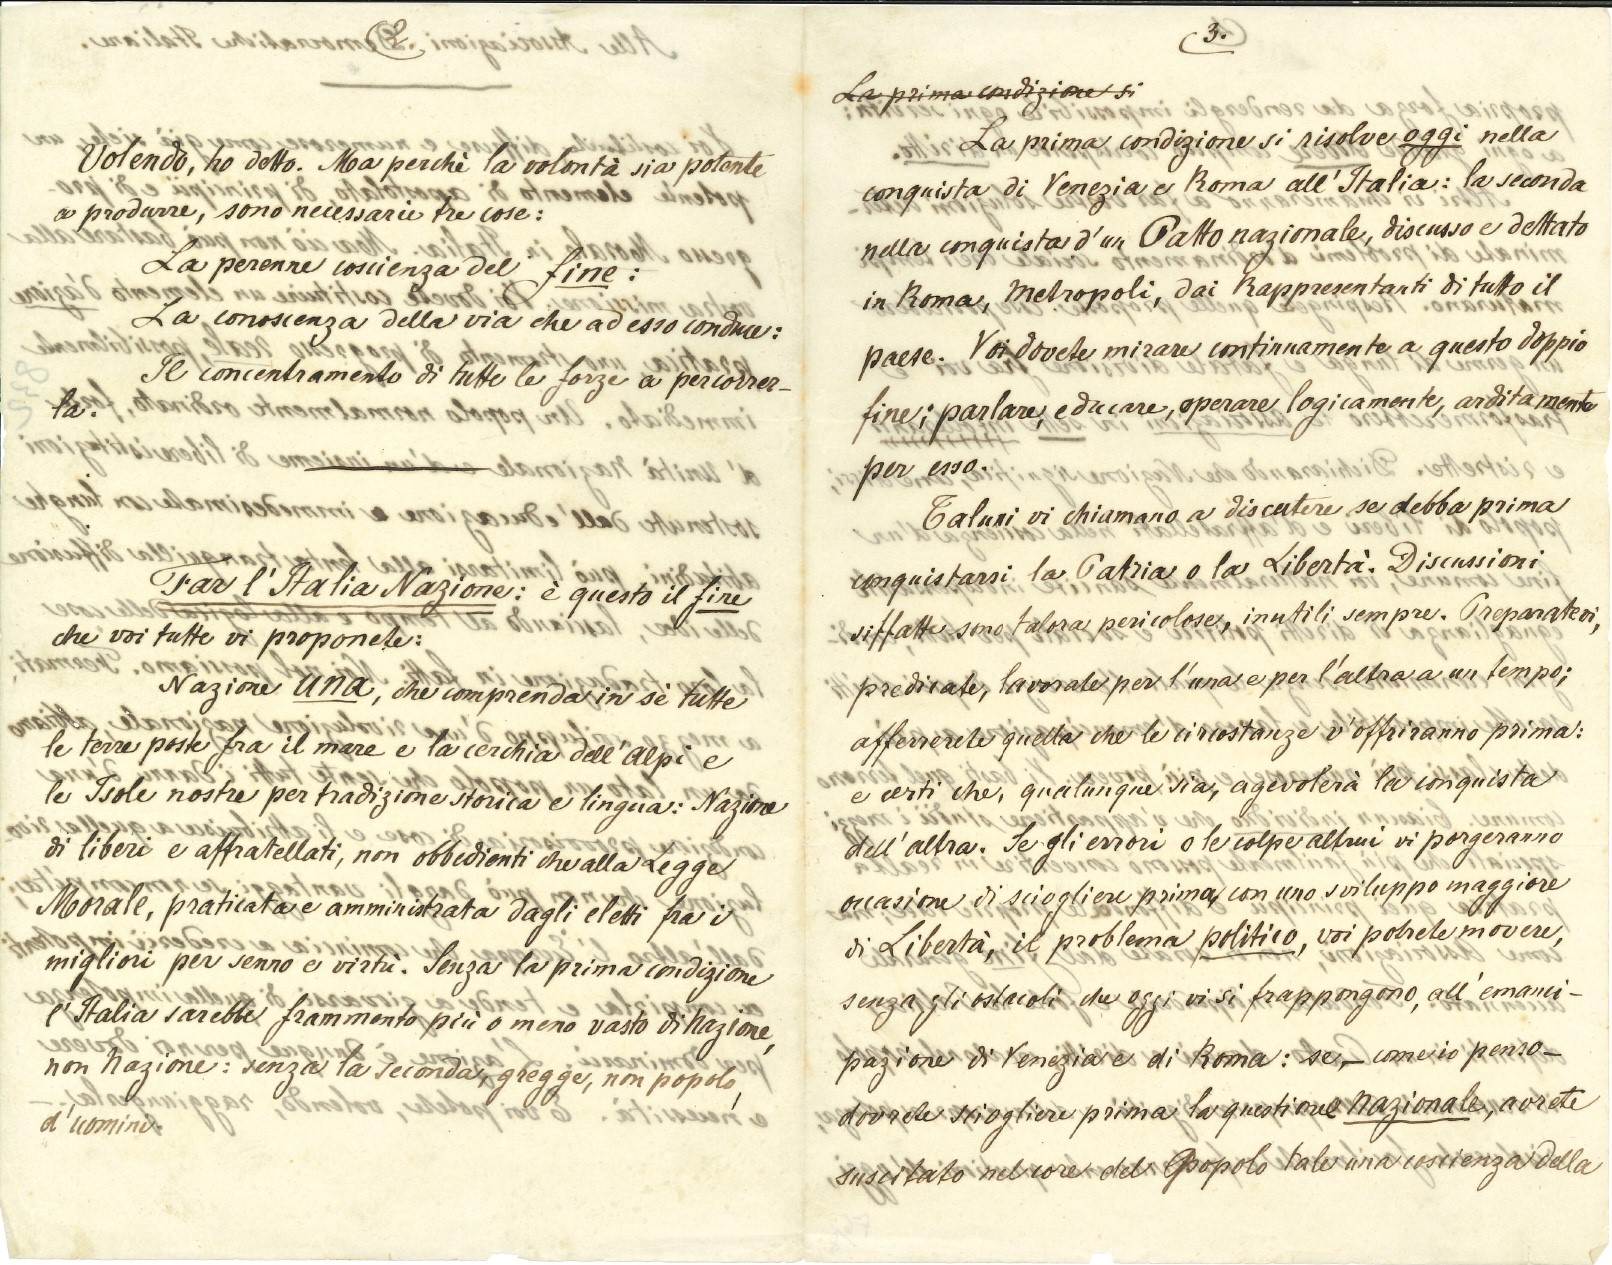 2.
Volendo, ho detto. Ma perchè la volontà sia potente
a produrre, sono necessarie tre cose:
La perenne coscienza del fine:
La conoscenza della via che ad esso conduce:
Il concentramento di tutte le forze a percorrer-
la.
Far l'Italia Nazione: è questo il fine
che voi tutte vi proponete:
Nazione una, che comprenda in sè tutte
le terre poste fra il mare e la cerchia dell'Alpi e
le Isole nostre per tradizione storica e lingua: Nazione
di liberi e affratellati, non obbedienti che alla Legge
Morale, praticata e amministrata dagli eletti fra i
migliori per senno e virtù. Senza la prima condizione
l'Italia sarebbe frammento più o meno vasto di Nazione,
non Nazione: senza la seconda, gregge, non popolo
d'uomini.
3.
La prima condizione si
La prima condizione si risolve oggi nella
conquista di Venezia e Roma all'Italia: la seconda
nella conquista d'un Patto nazionale, discusso e dettato
in Roma, Metropoli, dai Rappresentanti di tutto il
paese. Voi dovete mirare continuamente a questo doppio
fine; parlare, educare, operare logicamente, arditamente
per esso.
Taluni vi chiamano a discutere se debba prima
conquistarsi la Patria o la Libertà. Discussioni
siffatte sono talora pericolose, inutili sempre. Preparatevi,
predicate, lavorate per l'una e per l'altra a un tempo;
afferrerete quella che le circostanze v'offriranno prima:
e certi che, qualunque sia, agevolerà la conquista
dell'altra. Se gli errori o le colpe altrui vi porgeranno
occasione di sciogliere prima, con uno sviluppo maggiore
di Libertà, il problema politico, voi potrete movere,
senza gli ostacoli che oggi vi si frappongono, all'emanci-
pazione di Venezia e di Roma: se, – come io penso –
dovrete sciogliere prima la questione Nazionale, avrete
suscitato nel core del Popolo tale una coscienza della